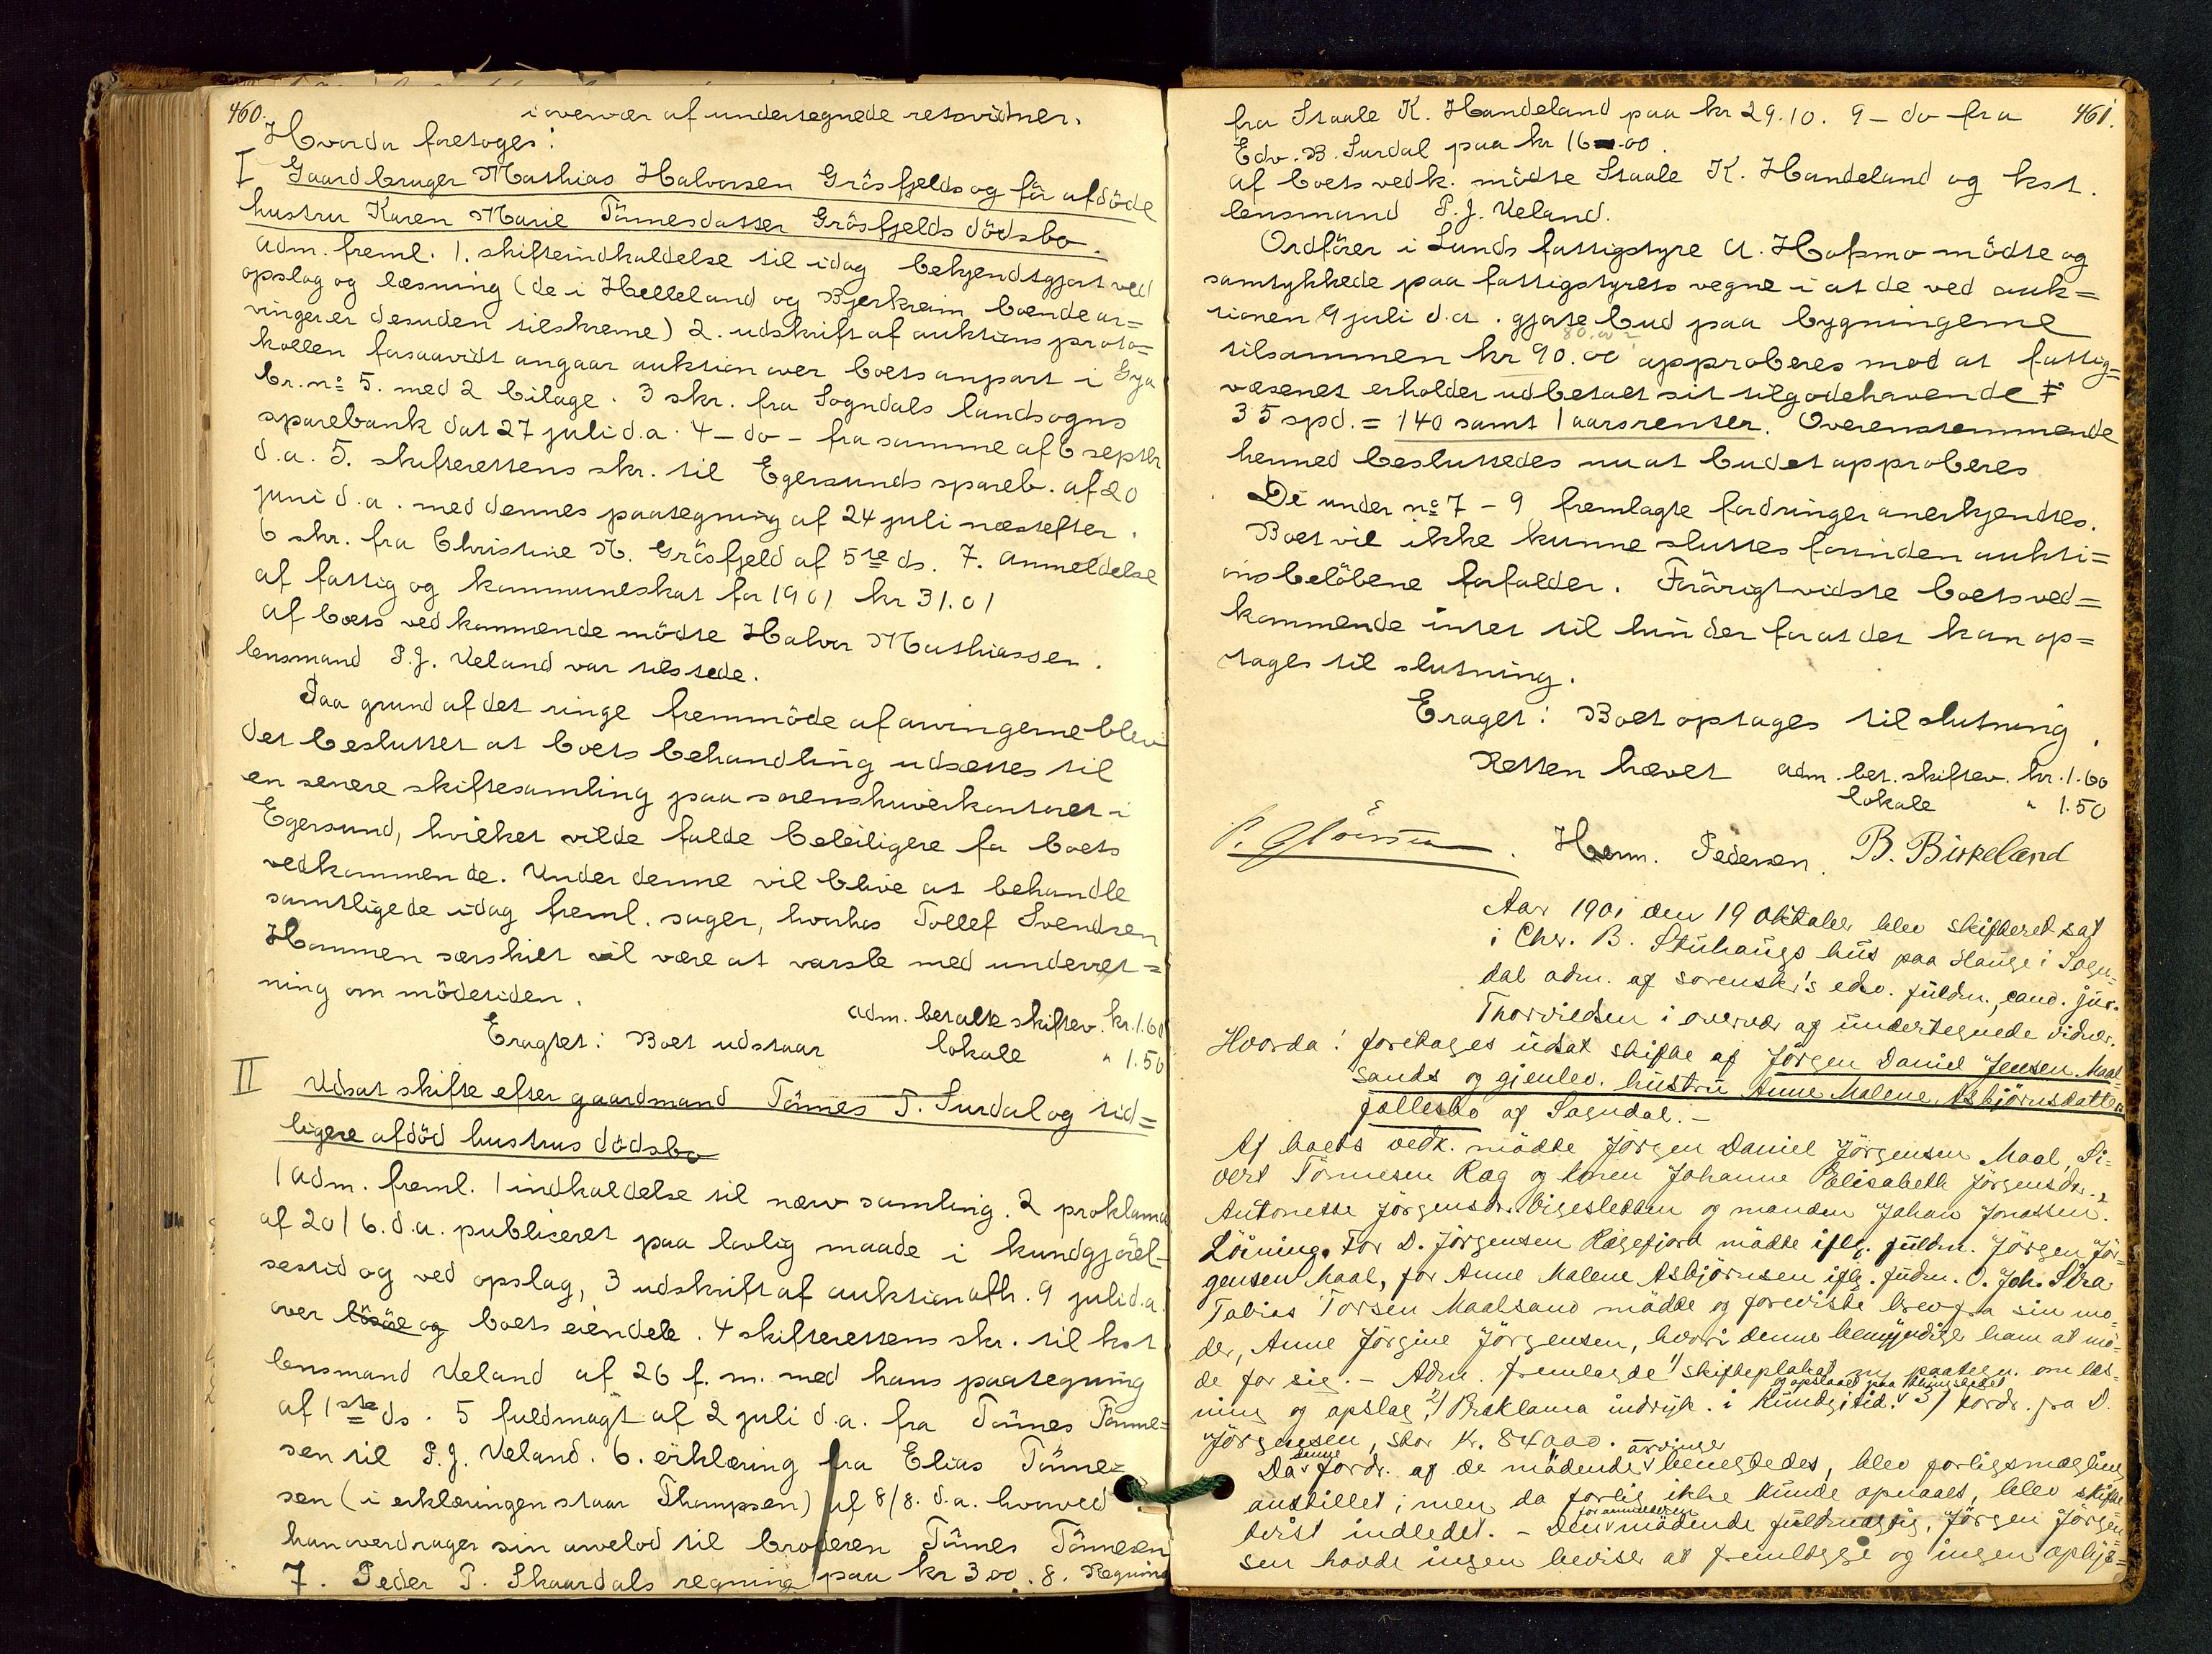 460.
i overvær af undertegnede retsvidner.
Hvorda foretoges:
I Gaardbruger Mathias Halvorsen Gråsfjelds og før afdöde
hustru Karen Marie Tönnesdatter Gråsfjelds dödsbo.
Adm. freml. 1. skifteindkaldelse til idag bekjendtgjort ved
opslag og læsning (de i Helleland og Bjerkreim boende ar=
vinger er desuden tilskrevne) 2. udskrift af auktionsproto=
kollen forsaavidt angaar auktion over boets anpart i Gya
br. no 5. med 2 bilage. 3 skr. fra Sogndals landsogns
sparebank dat 27 juli d.a. 4 – do – fra samme af 6 septbr
d.a. 5. skifterettens skr. til Egersunds spareb. af 20
juni d.a. med dennes paategning af 24 juli næstefter.
6 skr. fra Christine M. Gråsfjeld af 5te ds. 7. Anmeldelse
af fattig og kommuneskat for 1901 kr 31.01
Af boets vedkommende mödte Halvor Mathiassen.
lensmand P.J. Ueland var tilstede.
Paa grund af det ringe fremmöde af arvingerne blev
det besluttet at boets behandling udsættes til
en senere skiftesamling paa sorenskriverkontoret i
Egersund, hvilket vilde falde beleiligere for boets
vedkommende. Under denne vil blive at behandle
samtlige de idag freml. sager, hvorhos Tollef Svendsen
Hommen særskilt vil være at varsle med underret=
ning om mödetiden.
Adm. betalte skiftev. kr. 1.60
Eragtet: Boet udstaar lokale " 1.50
II Udsat skifte efter gaardmand Tönnes T. Surdal og tid=
ligere afdöd hustrus dödsbo
1 Adm. freml. 1 indkaldelse til nærv samling. 2 proklama
af 20/6. d.a. publiceret paa lovlig maade i kundgjörel-
sestid og ved opslag, 3 udskrift af auktion afh. 9 juli d.a.
over lösöre og boets eiendele. 4 skifterettens skr. til kst
lensmand Ueland af 26 f. m. med hans paategning
af 1ste ds. 5 fuldmagt af 2 juli d.a. fra Tönnes Tönne=
sen til P.J. Ueland. 6. erklæring fra Elias Tönne=
sen (i erklæringen staar Thompsen) af 8/8. d.a. hvorved
han overdrager sin arvelod til broderen Tönnes Tönnesen
7. Peder P. Skaardals regning paa kr 3.00. 8. Regning
461.
fra Staale K. Handeland paa kr 29.10. 9 – do fra
Edv. B. Surdal paa kr 16.00.
Af boets vedk. mödte Staale K. Handeland og kst.
lensmand P.J. Ueland.
Ordfører i Lunds fattigstyre A. Hofsmo mödte og
samtykkede paa fattigstyrets vegne i at de ved auk=
tionen 9 juli d.a. gjorte bud paa bygningerne
tilsammen kr 90.00 approberes mod at fattig=
væsenet erholder udbetalt sit tilgodehavende
35 spd. = 140 samt 1 aars renter. Overenstemmende
hermed besluttedes nu at budet approberes
De under no 7 – 9 fremlagte fordringer anerkjendtes.
Boet vil ikke kunne sluttes forinden aukti=
onsbelöbene forfalder. Förövrigt vidste boets ved=
kommende intet til hinder for at det kan op=
tages til slutning.
Eragtet: Boet optages til slutning.
Retten hævet Adm. bet. skiftev. kr. 1.60
lokale " 1.50
Herm. Pedersen. B. Birkeland
Aar 1901 den 19 Oktober blev skifteret sat
i Chr. B. Stuhaugs hus paa Hauge i Sogn=
dal adm. af sorenskr's edsv. fuldm., cand. jur.
Thorvildsen i overvær af undertegnede vidner.
Hvorda: foretages udsat skifte af Jörgen Daniel Jensen Maal=
sands og gjenlev. hustru Anne Malene Asbjörnsdatters
fællesbo af Sogndal. –
Af boets vedk. mödte Jörgen Daniel Jörgensen Maal, Si=
vert Tönnesen Rag og konen Johanne Elisabeth Jörgensdr.,
Antonette Jörgensdr. Vigesletten og manden Johan Jonassen.
Löining. For D. Jörgensen Rægefjord mödte iflg. fuldm. Jörgen Jör=
gensen Maal, for Anne Malene Asbjörnsen iflg. fuldm. O. Joh. Stra
Tobias Torsen Maalsand mödte og foreviste brev fra sin mo=
der, Anne Jörgine Jörgensen, hvori denne bemyndiger ham at mö=
de for sig. – Adm. fremlagde 1/ skifteplakat m. paategn. om læs=
ning og opslag, 2/ Proklama indryk. i Kundgj.tid. og opslaaet paa thingstedet 3/ fordr. fra D.
Jörgensen, stor kr. 840.00.
Da denne fordr. af de mödende arvinger benegtedes, blev forligsmægling
anstillet; men da forlig ikke kunde opnaaes, blev skifte
tvist indledet. – Den for anmelderen mödende fuldmægtig, Jörgen Jörgen=
sen havde ingen beviser at fremlægge og ingen oplys=